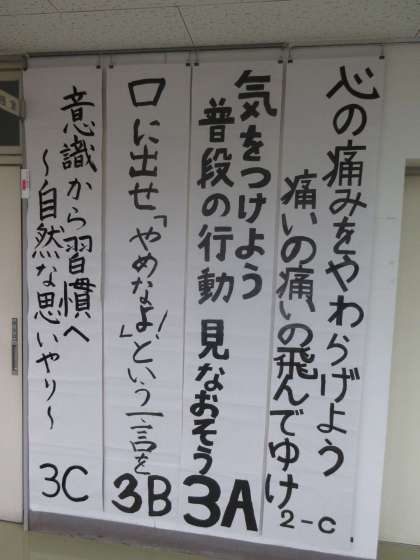 心の痛みをやわらげよう
痛いの痛いの飛んでゆけ
2-C
気をつけよう
普段の行動 見なおそう
3A
口に出せ「やめなよ!」という一言を
3B
意識から習慣へ
～自然な思いやり～
3C